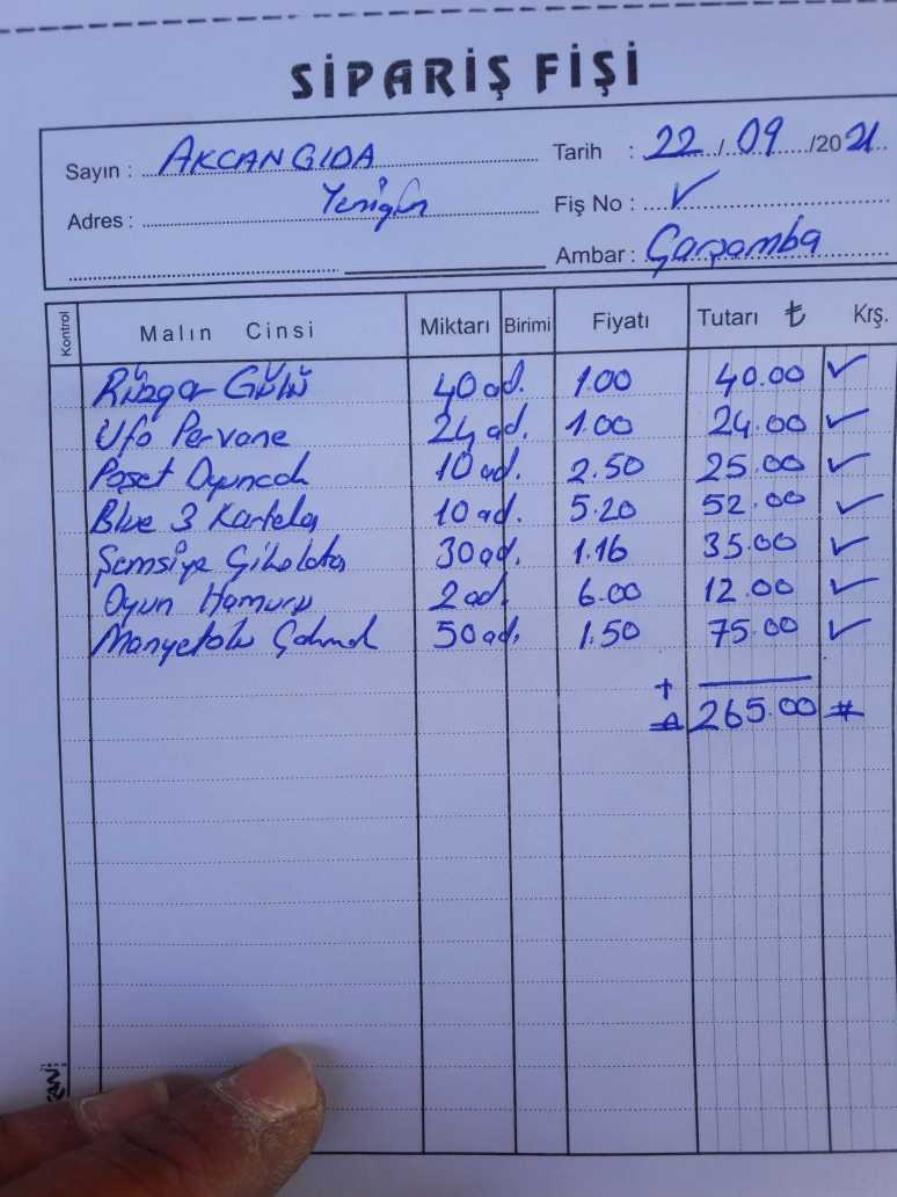 SİPARİŞ FİŞİ
Sayın : AKCAN GIDA Tarih : 22/09/2021
Adres : Yenigün Fiş No : ✓
Ambar : Çarşamba
Kontrol Malın Cinsi Miktarı Birimi Fiyatı Tutarı ₺ Krş.
Rüzgar Gülü 40 ad. 1.00 40.00 ✓
Ufo Pervane 24 ad. 1.00 24.00 ✓
Poşet Oyuncak 10 ad. 2.50 25.00 ✓
Blue 3 Kartela 10 ad. 5.20 52.00 ✓
Şemsiye Çikolata 30 ad. 1.16 35.00 ✓
Oyun Hamuru 2 ad. 6.00 12.00 ✓
Manyetolu Çakmak 50 ad. 1.50 75.00 ✓
+
265.00 #